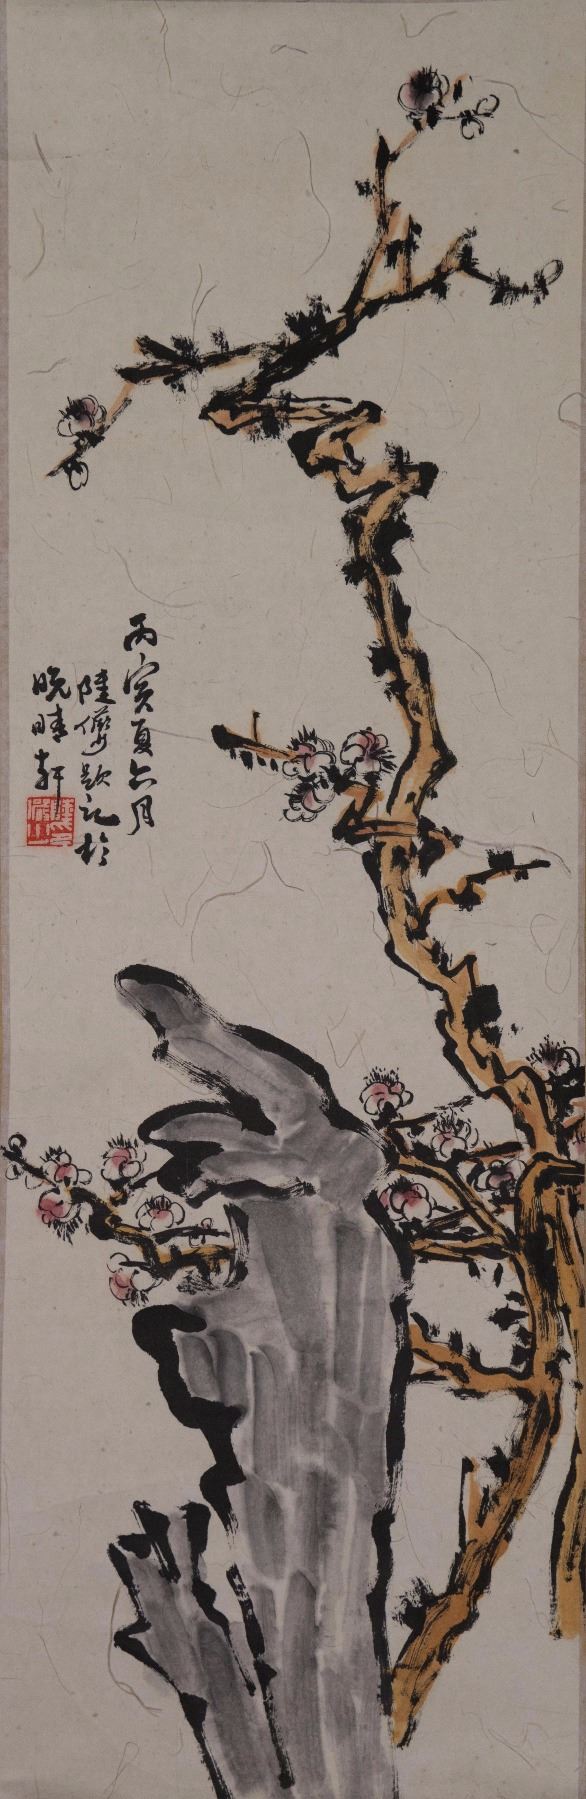 丙寅夏六月
陸儼少題記於
晚晴軒